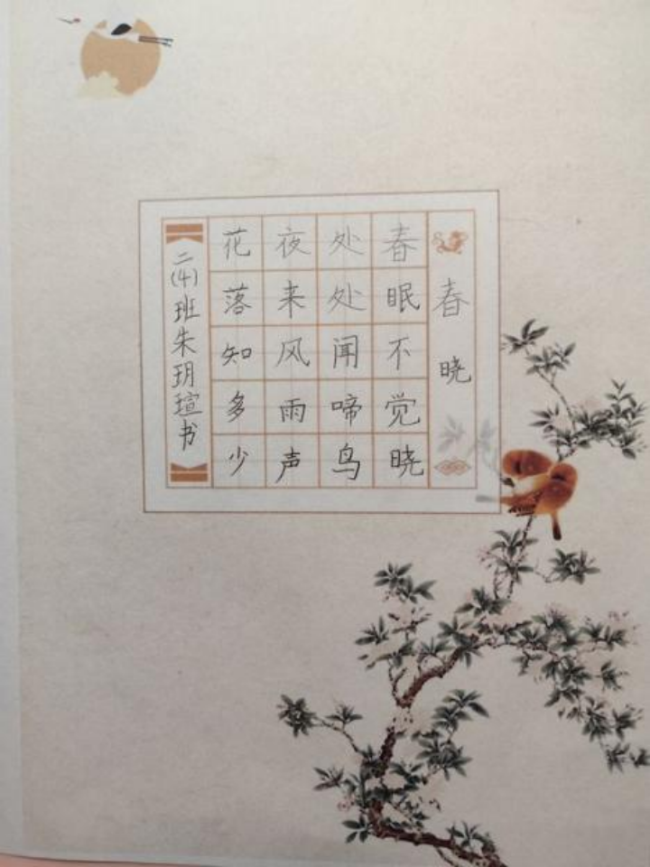 春晓
春眠不觉晓
处处闻啼鸟
夜来风雨声
花落知多少
二(4)班朱玥瑄书